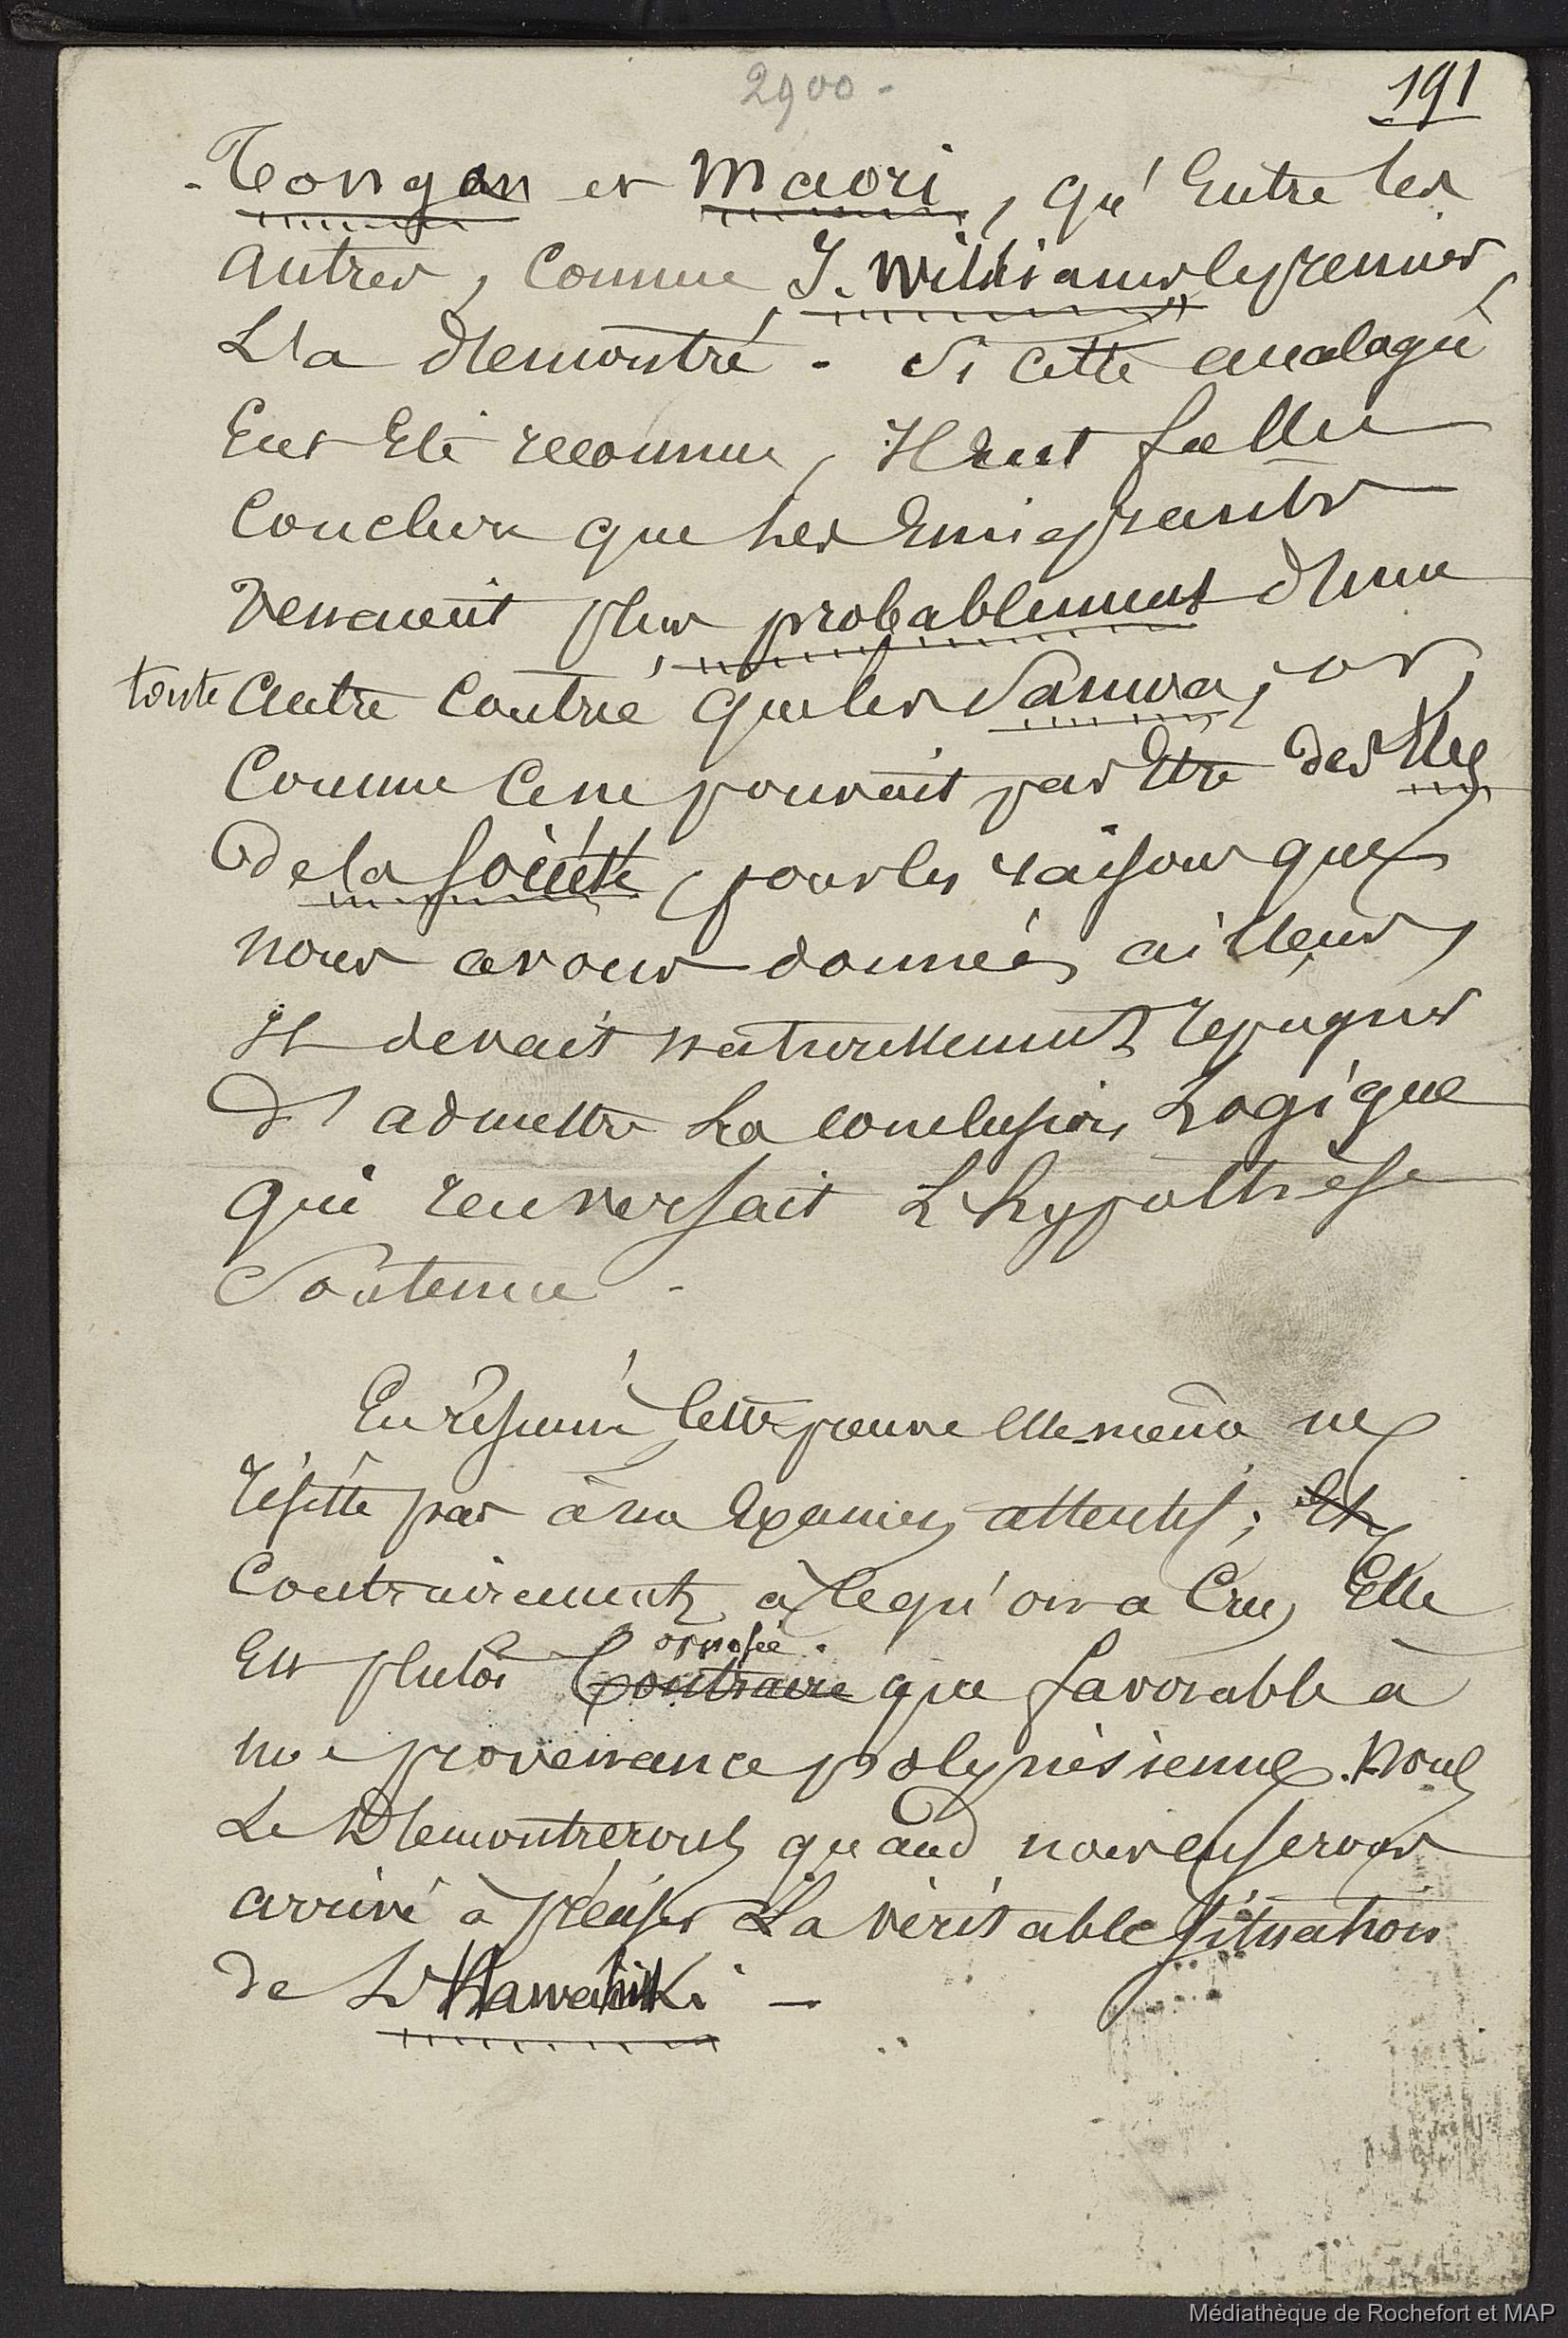 2900 -
191
- Tongan et Maori, qu'entre les
autres, comme J. Williams le premier
l'a démontré. Si cette analogie
eut été reconnue, il eut fallu
conclure que les émigrants
venaient plus probablement d'une
toute autre contrée que les Samoa; or,
comme ce ne pouvait pas être des îles
de la Société, pour les raisons que
nous avons données ailleurs,
il devait naturellement répugner
d'admettre la conclusion logique
qui renversait l'hypothèse
soutenue.
En résumé cette preuve elle-même ne
résiste pas à un examen attentif; et
contrairement à ce qu'on a cru, elle
opposée
est plutôt contraire que favorable à
une provenance polynésienne. Nous
le démontrerons quand nous en serons
arrivé à préciser la véritable situation
de l'Hawahiki. —
Médiathèque de Rochefort et MAP